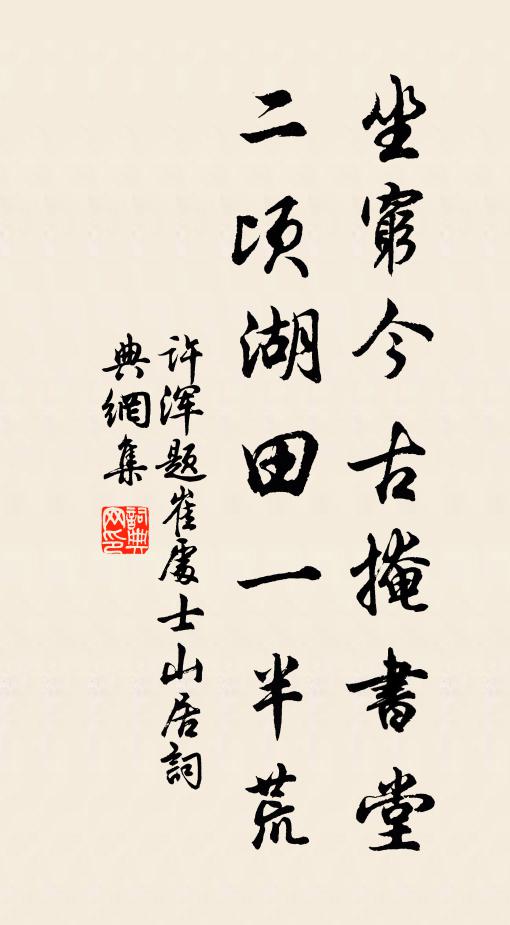 坐窮今古掩書堂
二頃湖田一半荒
许浑题崔處士山居詞
典網集
詞典
网印